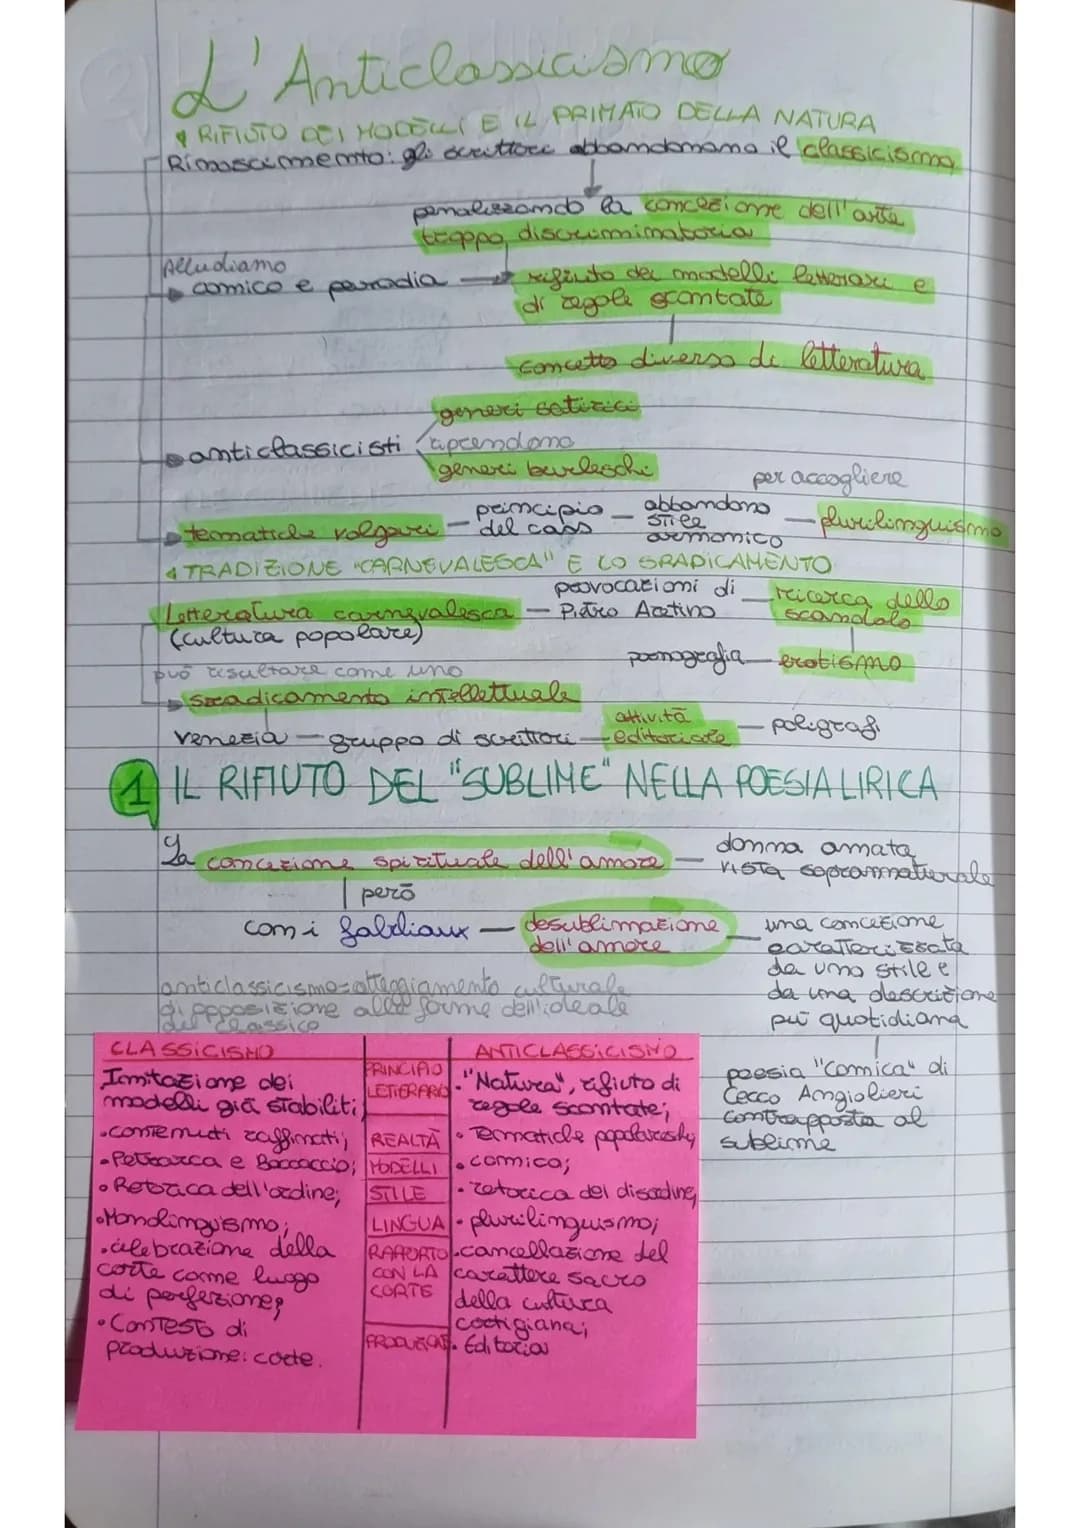 L'Anticlassicismo
RIFIUTO DEI MODELLI E IL PRIMATO DELLA NATURA
Rinascimento: gli scrittori abbandonano il classicismo
penalizzando la concezione dell'arte
troppo discriminatoria
Alludiamo
comico e parodia → rifiuto dei modelli letterari e
di regole scontate
concetto diverso di letteratura
generi satirici
anticlassicisti riprendono
generi burleschi
per accogliere
tematiche volgari - principio del caos - abbandono stile armonico - plurilinguismo
TRADIZIONE "CARNEVALESCA" E LO SRADICAMENTO
Letteratura carnevalesca - provocazioni di Pietro Aretino - ricerca dello scandalo
(cultura popolare)
pornografia - erotismo
può risultare come uno
sradicamento intellettuale
venezia - gruppo di scrittori - attività editoriale - poligrafi
1 IL RIFIUTO DEL "SUBLIME" NELLA POESIA LIRICA
La concezione spirituale dell'amore - donna amata
vista soprannaturale
però
con i fabliaux - desublimazione
dell'amore
una concezione
caratterizzata
da uno stile e
da una descrizione
più quotidiana
anticlassicismo=atteggiamento culturale
di opposizione alle forme dell'ideale
del classico
poesia "Comica" di
Cecco Angiolieri
contrapposta al
sublime
CLASSICISMO
Imitazione dei
modelli già stabiliti;
•contenuti raffinati;
•Petrarca e Boccaccio;
•Retorica dell'ordine;
•Monolinguismo;
•celebrazione della
corte come luogo
di perfezione;
•Contesto di
produzione: corte.
PRINCIPIO
LETTERARIO
REALTÀ
MODELLI
STILE
LINGUA
RAPPORTO
CON LA
CORTE
PRODUZIONE
ANTICLASSICISMO
•"Natura", rifiuto di
regole scontate;
•Tematiche popolaresche;
•comico;
•retorica del disordine;
•plurilinguismo;
•cancellazione del
carattere sacro
della cultura
cortigiana;